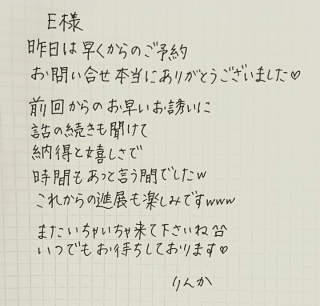 E様
昨日は早くからのご予約
お問い合せ本当にありがとうございました♡
前回からのお早いお誘いに
話の続きも聞けて
納得と嬉しさで
時間もあっと言う間でしたw
これからの進展も楽しみですwww
またいちゃいちゃ来て下さいね^^
いつでもお待ちしております♡
りんか